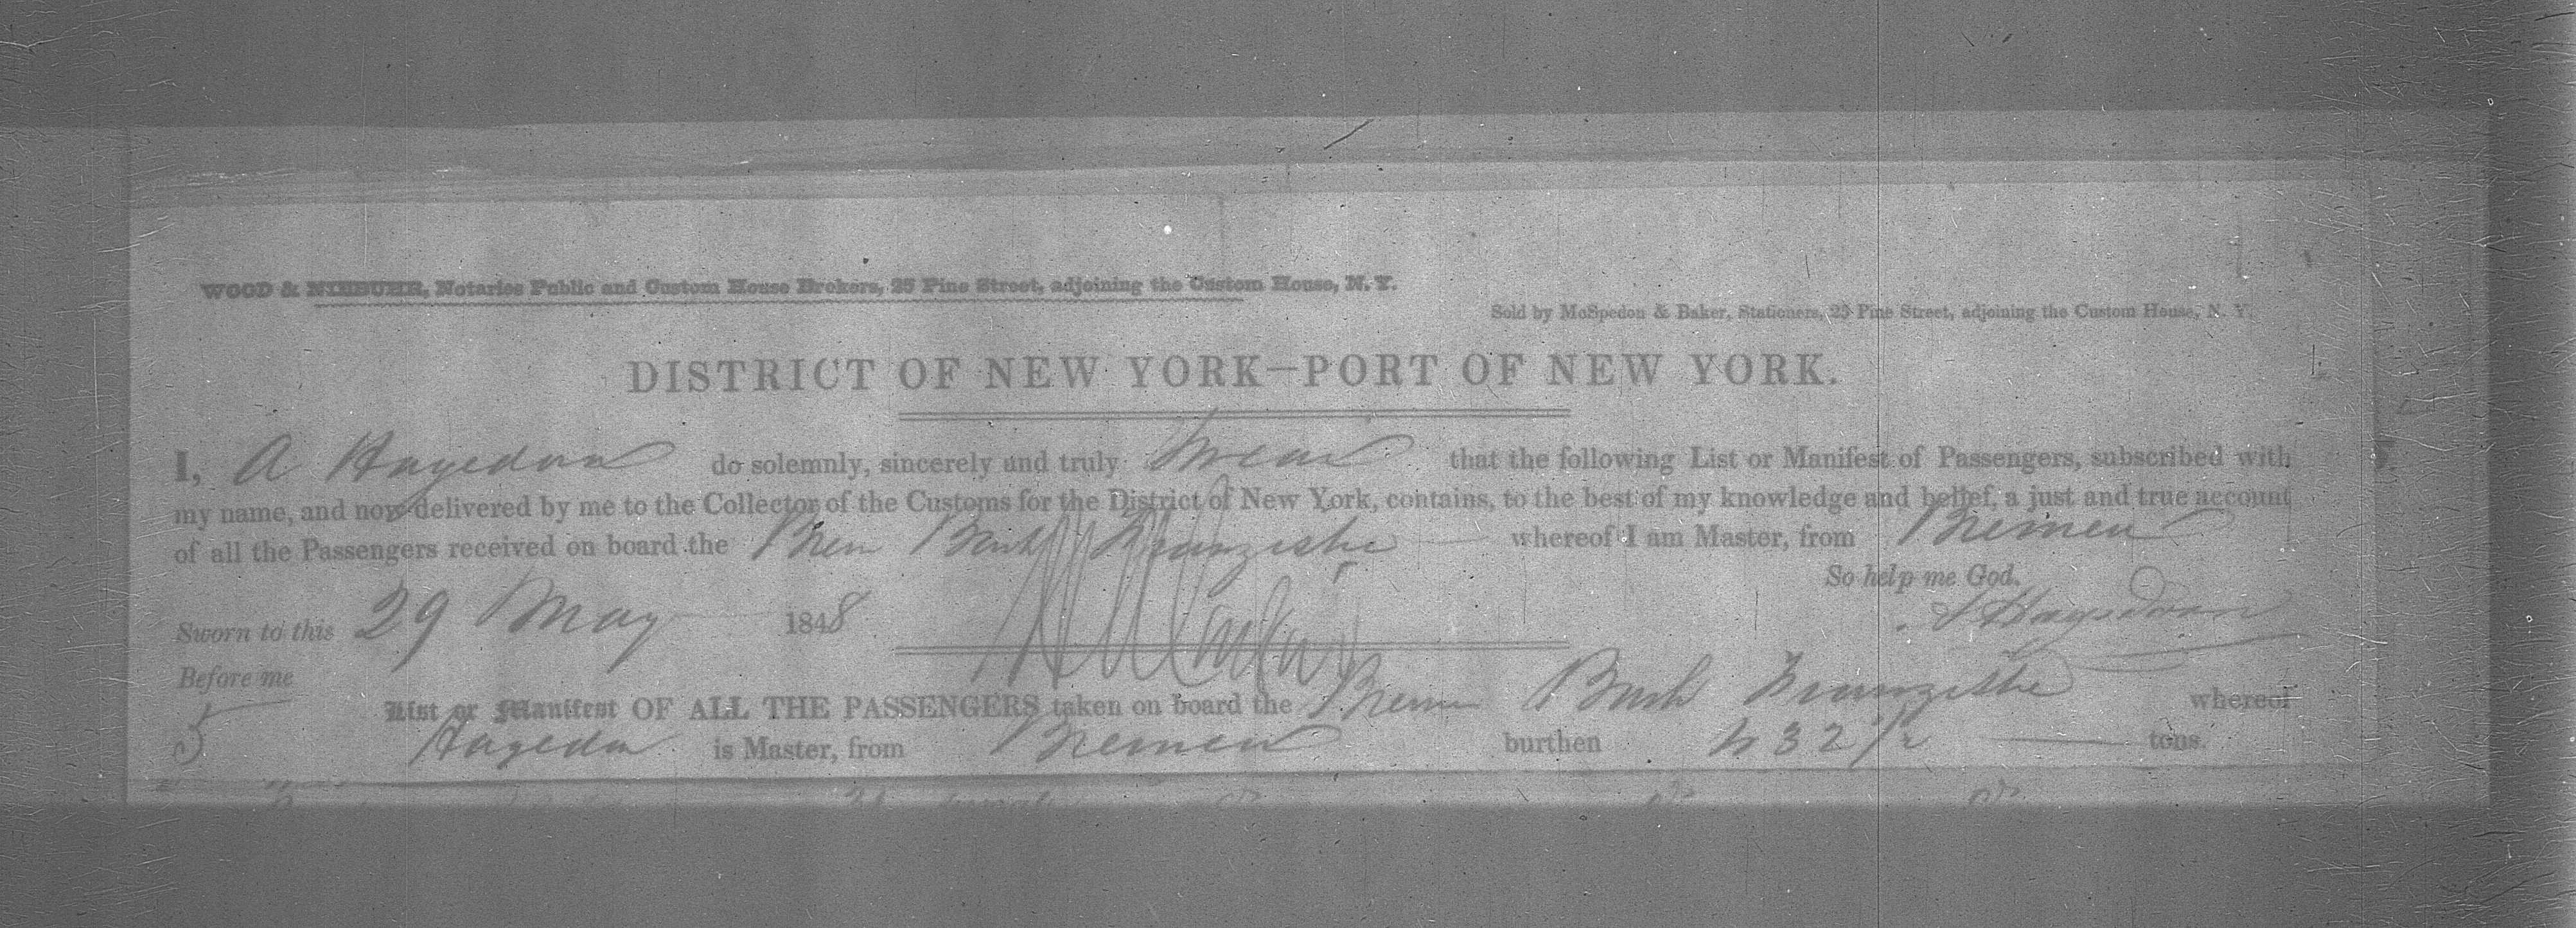 WOOD & NIEBUHR, Notaries Public and Custom House Brokers, 25 Pine Street, adjoining the Custom House, N. Y.
Sold by McSpedon & Baker, Stationers, 25 Pine Street, adjoining the Custom House, N. Y.
DISTRICT OF NEW YORK—PORT OF NEW YORK.
I, A Hagedorn do solemnly, sincerely and truly swear that the following List or Manifest of Passengers, subscribed with
my name, and now delivered by me to the Collector of the Customs for the District of New York, contains, to the best of my knowledge and belief, a just and true account
of all the Passengers received on board the Brem Bark Franziska whereof I am Master, from Bremen
So help me God.
Sworn to this 29 May 1848
A Hagedorn
Before me
List or Manifest OF ALL THE PASSENGERS taken on board the Bremen Bark Franziska whereof
5 Hagedorn is Master, from Bremen burthen 432 1/2 tons.